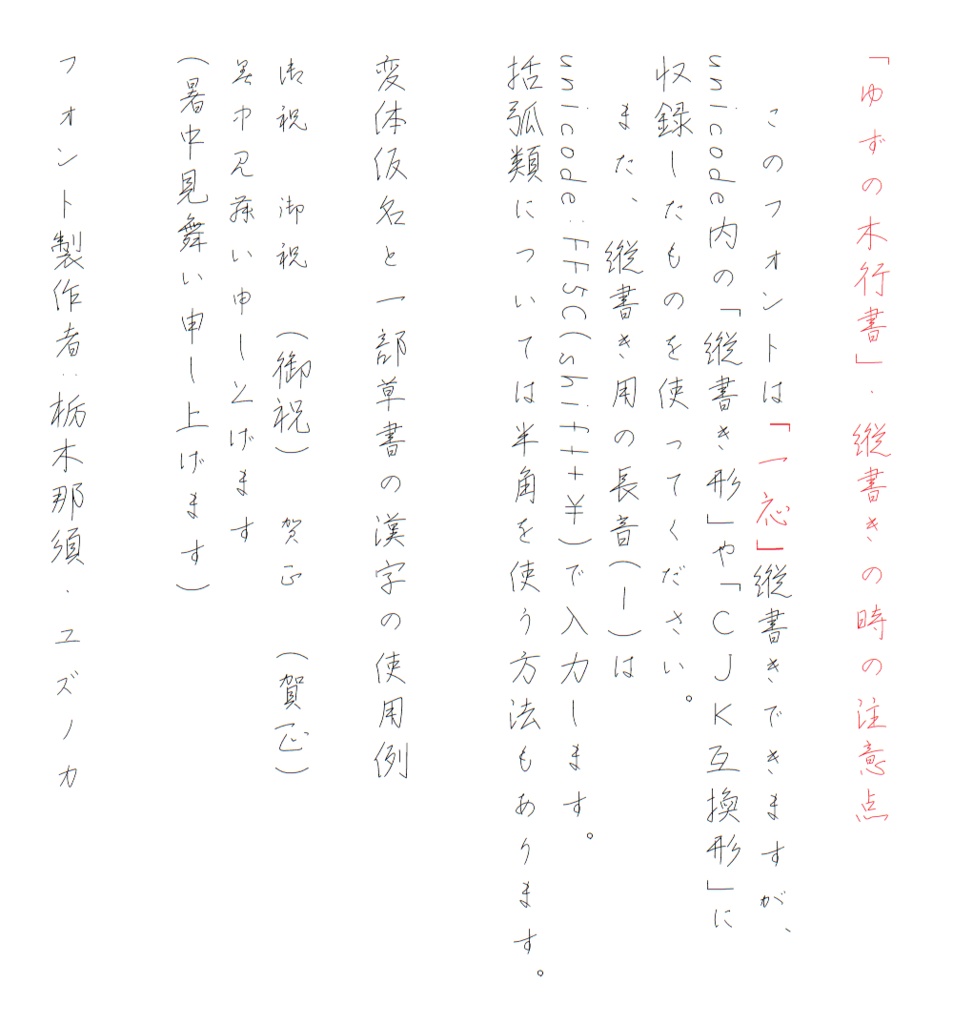 「ゆずの木行書」・縦書きの時の注意点
このフォントは「一応」縦書きできますが、
unicode内の「縦書き形」や「CJK互換形」に
収録したものを使ってください。
また、縦書き用の長音(ー)は
unicode:FF5C(shift+¥)で入力します。
括弧類については半角を使う方法もあります。
変体仮名と一部草書の漢字の使用例
御祝 御祝 (御祝) 賀正 (賀正)
暑中見舞い申し上げます
(暑中見舞い申し上げます)
フォント製作者:栃木那須・ユズノカ